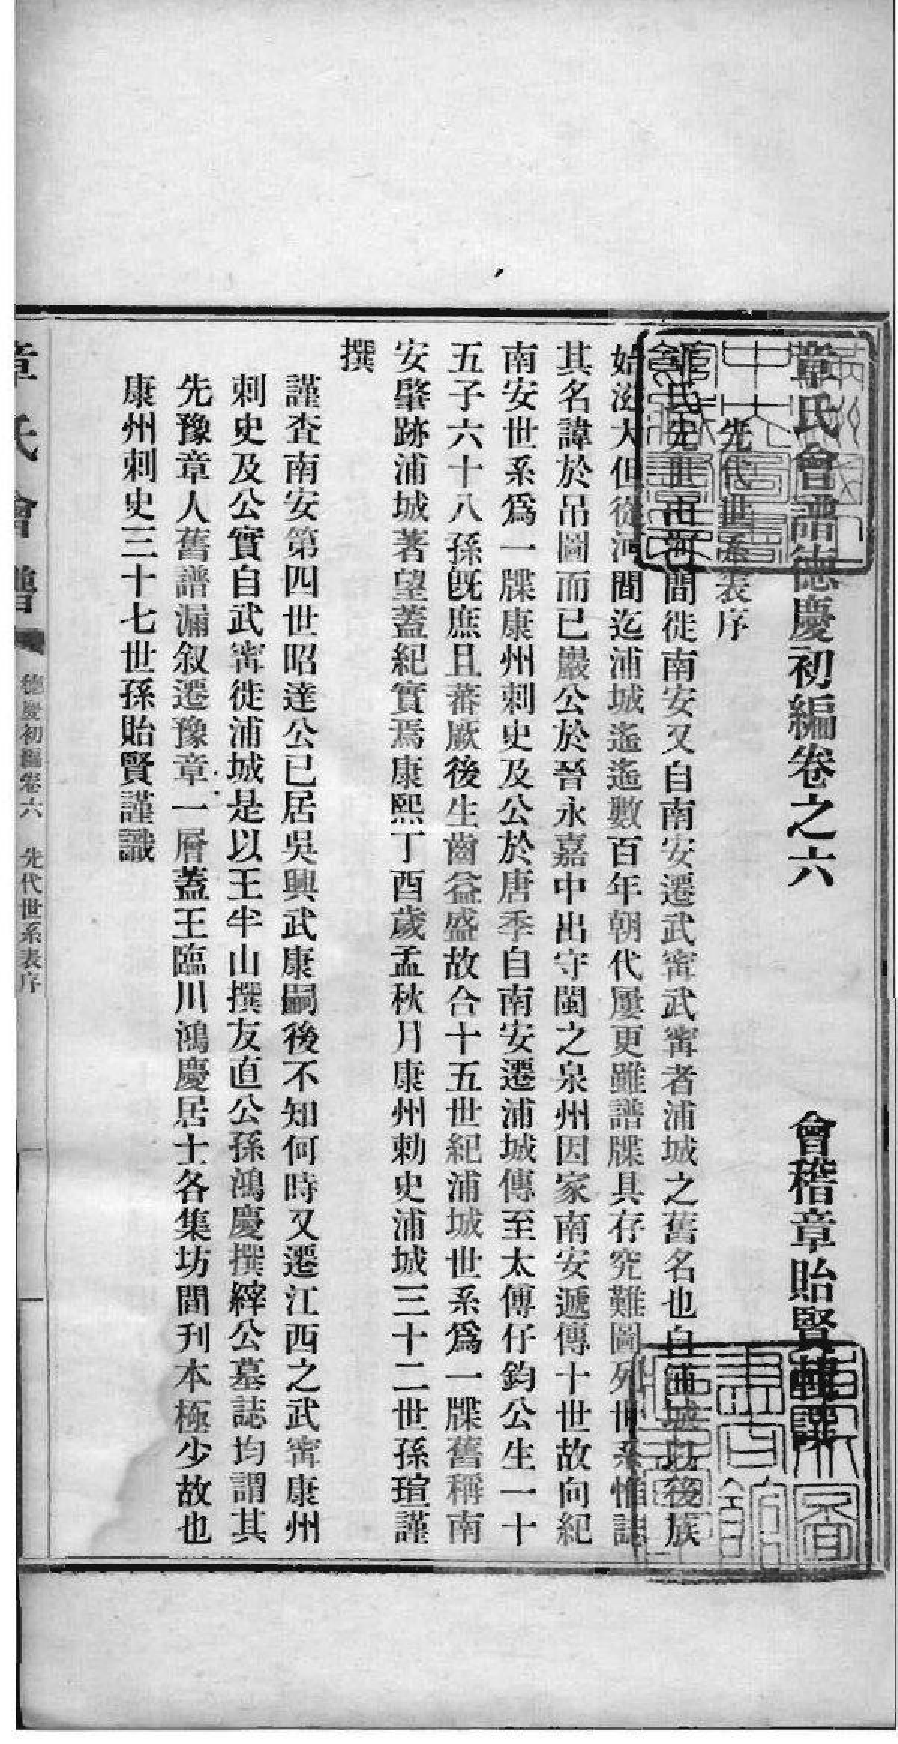 章氏會譜德慶初編卷之六
會稽章貽賢輯譔
先代世系表序
章氏先世由河間徙南安又自南安遷武甯武甯者浦城之舊名也自浦城以後族
始滋大但從河間迄浦城遙遙數百年朝代屢更雖譜牒具存究難圖列世系惟誌
其名諱於吊圖而已巖公於晉永嘉中出守閩之泉州因家南安遞傳十世故向紀
南安世系爲一牒康州刺史及公於唐季自南安遷浦城傳至太傅仔鈞公生一十
五子六十八孫旣庶且蕃厥後生齒益盛故合十五世紀浦城世系爲一牒舊稱南
安肇跡浦城著望蓋紀實焉康熙丁酉歲孟秋月康州勅史浦城三十二世孫瑄謹
撰
謹查南安第四世昭達公已居吳興武康嗣後不知何時又遷江西之武甯康州
刺史及公實自武甯徙浦城是以王半山撰友直公孫鴻慶撰縡公墓誌均謂其
先豫章人舊譜漏叙遷豫章一層蓋王臨川鴻慶居士各集坊間刊本極少故也
康州刺史三十七世孫貽賢謹識
章氏會譜
德慶初編卷六 先代世系表序
一